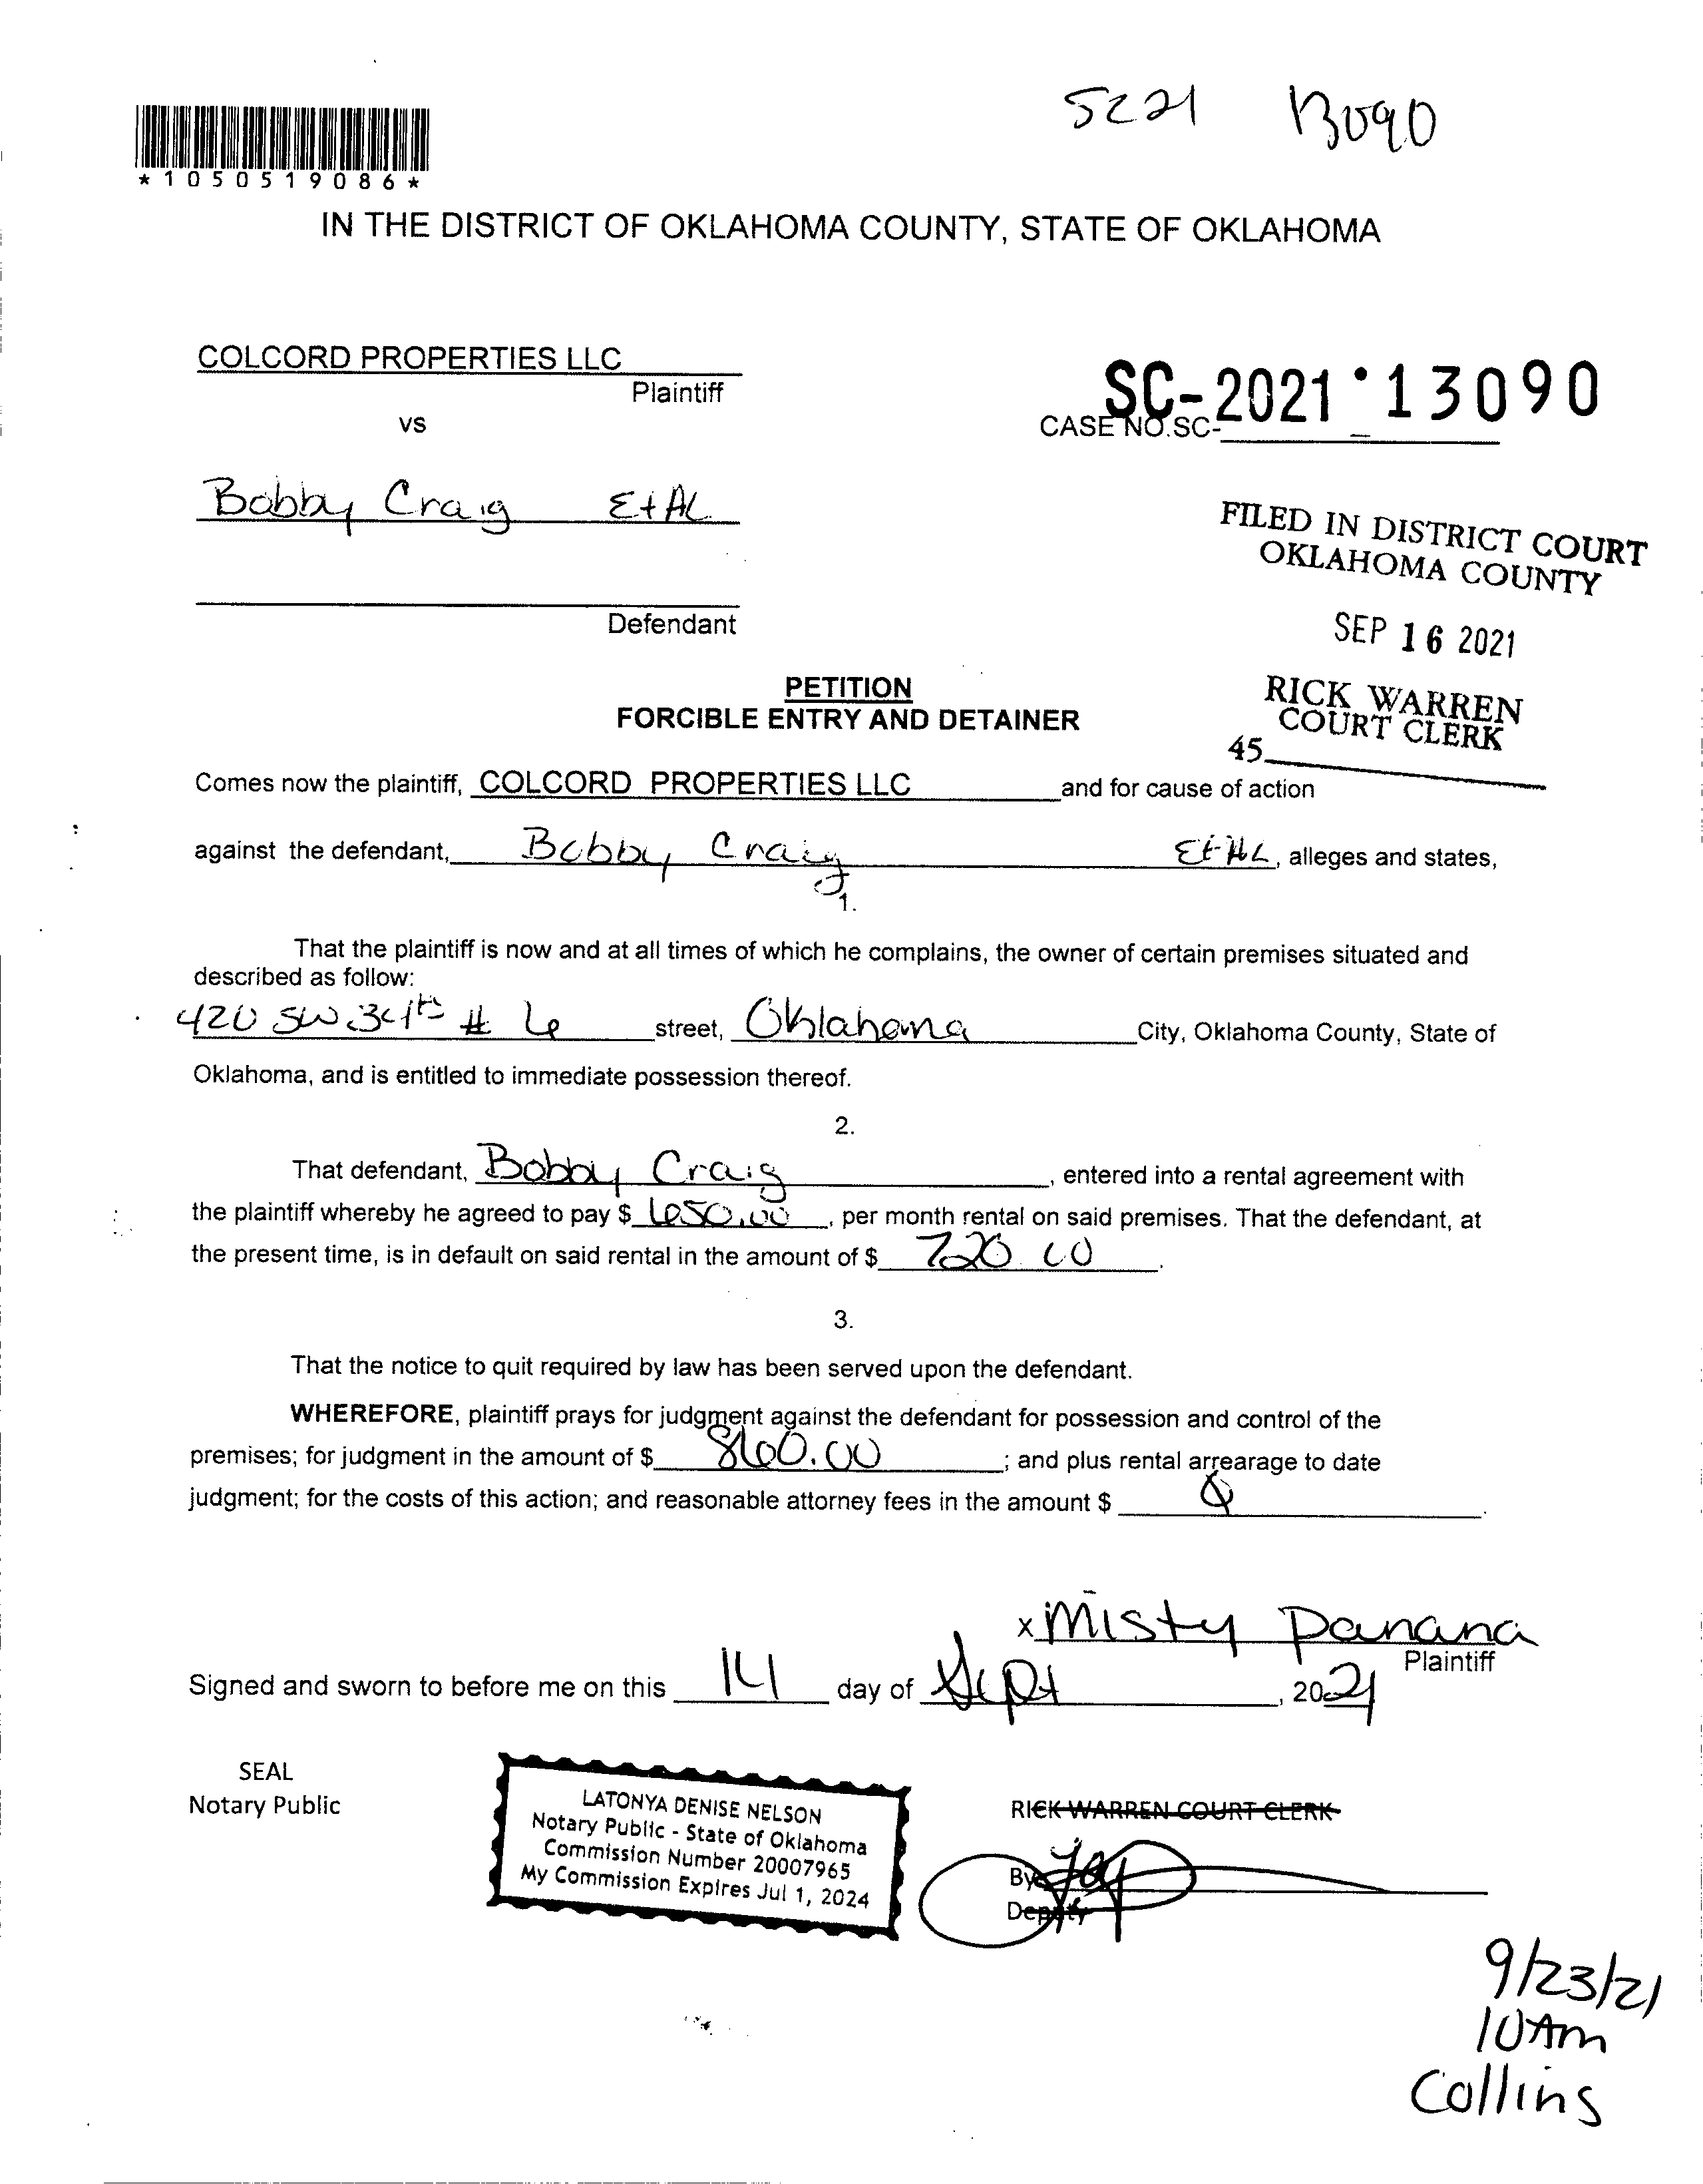 SC21 13090
*1050519086*
IN THE DISTRICT OF OKLAHOMA COUNTY, STATE OF OKLAHOMA
COLCORD PROPERTIES LLC
Plaintiff
vs
SC-2021 13090
CASE NO.SC-
Bobby Craig Et AL
Defendant
FILED IN DISTRICT COURT
OKLAHOMA COUNTY
SEP 16 2021
RICK WARREN
COURT CLERK
45
PETITION
FORCIBLE ENTRY AND DETAINER
Comes now the plaintiff, COLCORD PROPERTIES LLC and for cause of action
against the defendant, Bobby Craig Et AL, alleges and states,
1.
That the plaintiff is now and at all times of which he complains, the owner of certain premises situated and
described as follow:
420 SW 34th # 6 street, Oklahoma City, Oklahoma County, State of
Oklahoma, and is entitled to immediate possession thereof.
2.
That defendant, Bobby Craig, entered into a rental agreement with
the plaintiff whereby he agreed to pay $ 650.00, per month rental on said premises. That the defendant, at
the present time, is in default on said rental in the amount of $ 720.00.
3.
That the notice to quit required by law has been served upon the defendant.
WHEREFORE, plaintiff prays for judgment against the defendant for possession and control of the
premises; for judgment in the amount of $ 860.00; and plus rental arrearage to date
judgment; for the costs of this action; and reasonable attorney fees in the amount $
x Misty Panana
Plaintiff
Signed and sworn to before me on this 14 day of Sept, 2021
SEAL
Notary Public
LATONYA DENISE NELSON
Notary Public - State of Oklahoma
Commission Number 20007965
My Commission Expires Jul 1, 2024
RICK WARREN COURT CLERK
By
Deputy
9/23/21
10Am
Collins